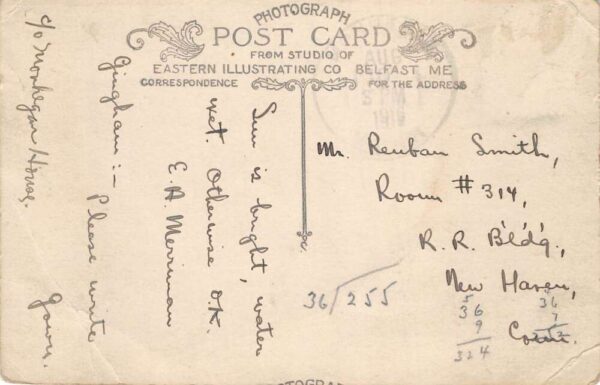 PHOTOGRAPH
POST CARD
FROM STUDIO OF
EASTERN ILLUSTRATING CO BELFAST ME
CORRESPONDENCE
FOR THE ADDRESS
c/o Monhegan House.
Gingham:-
Please write
Yours.
Sun is bright, water
wet. Otherwise O.K.
E. A. Merriman
Mr. Reuban Smith,
Room # 314,
R. R. Bldg.,
New Haven,
Conn.
36/255
5
36
9
324
36
7
PHOTOGRAPH